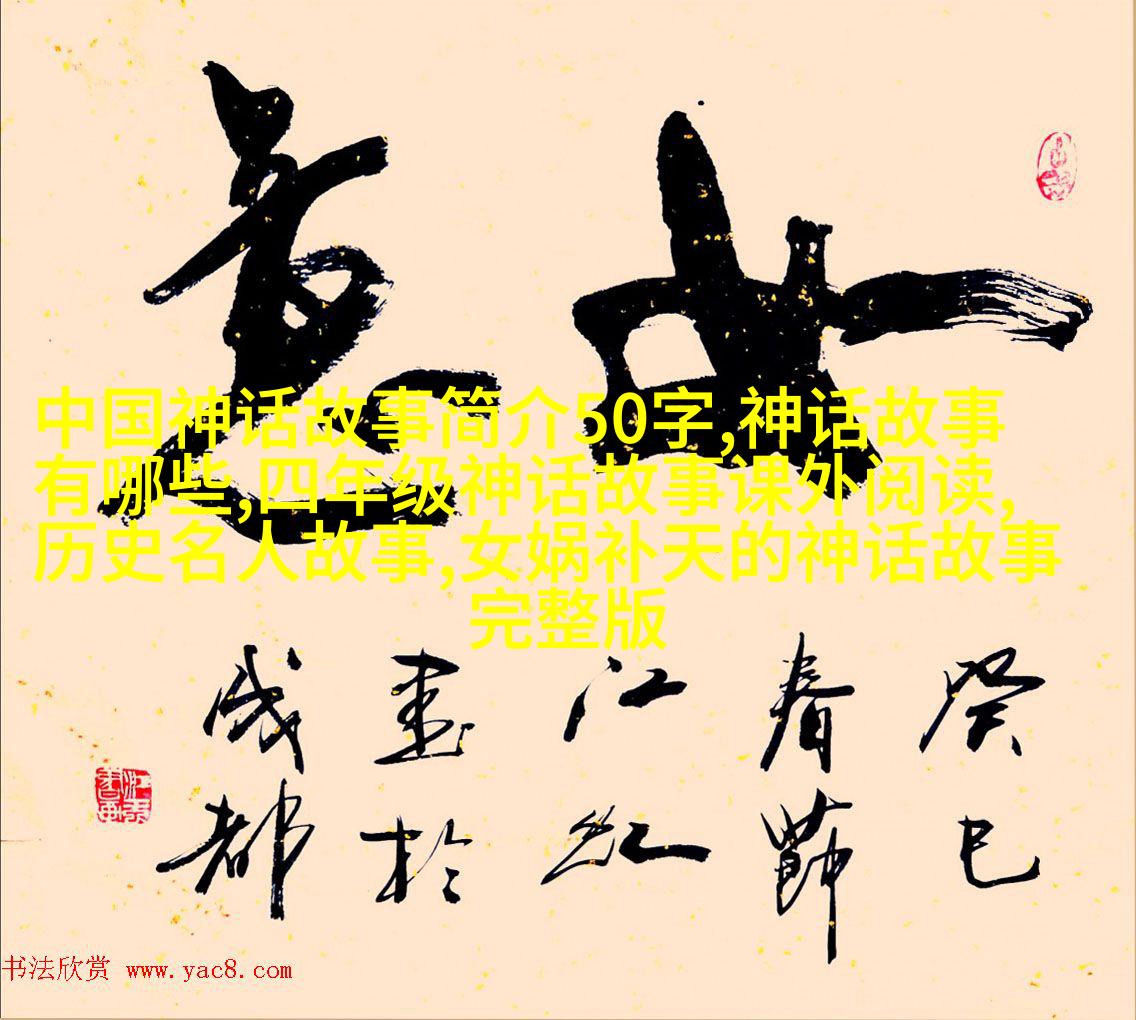 如意
中国神话故事简介50字,神话故事
有哪些,四年级神话故事课外阅读,
历史名人故事,女娲补天的神话故事
完整版
癸巳
春节
江红
书于
成都
书法欣赏 www.yac8.com